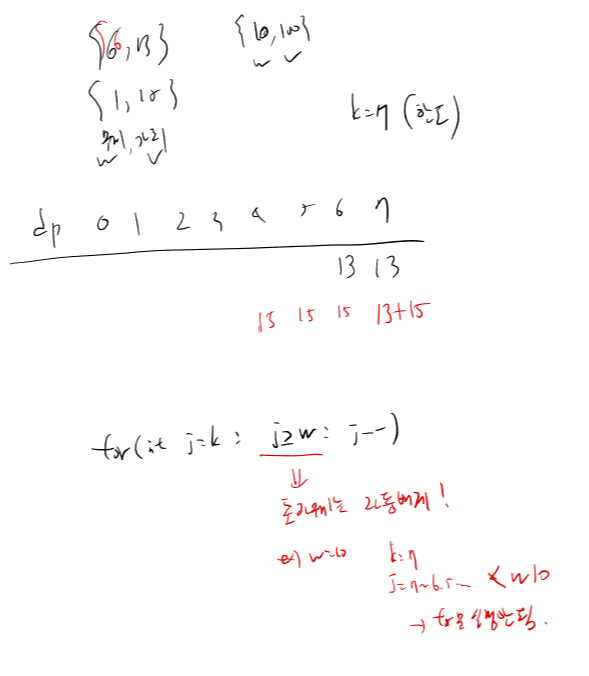 {6, 13} {10, 100}
w v
{1, 15}
k=7 (한도)
무게, 가치
w v
dp 0 1 2 3 4 5 6 7
13 13
15 15 15 13+15
for(int j=k; j≥w; j--)
⇓
초과무게는 자동배제!
예) w=10 k=7
j=7~6.5... < w 10
→ for문 실행안됨.